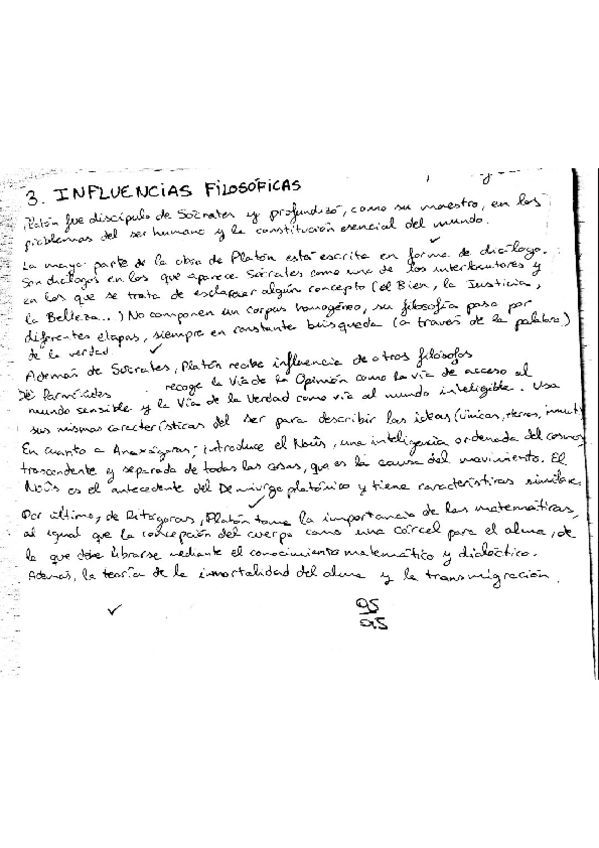 3. INFLUENCIAS FILOSÓFICAS
Platón fue discípulo de Sócrates y profundizó, como su maestro, en los
problemas del ser humano y la constitución esencial del mundo.
La mayor parte de la obra de Platón está escrita en forma de diálogo.
Son diálogos en los que aparece Sócrates como uno de los interlocutores y
en los que se trata de esclarecer algún concepto (el Bien, la Justicia,
la Belleza...) No componen un corpus homogéneo, su filosofía pasa por
diferentes etapas, siempre en constante búsqueda (a través de la palabra)
de la verdad.
Además de Sócrates, Platón recibe influencia de otros filósofos
De Parménides recoge la Vía de la Opinión como la vía de acceso al
mundo sensible y la Vía de la Verdad como vía al mundo inteligible. Usa
sus mismas características del ser para describir las ideas (únicas, eternas, inmut
En cuanto a Anaxágoras, introduce el Noûs, una inteligencia ordenada del cosmos,
trascendente y separada de todas las cosas, que es la causa del movimiento. El
Noûs es el antecedente del Demiurgo platónico y tiene características similares
Por último, de Pitágoras, Platón toma la importancia de las matemáticas,
al igual que la concepción del cuerpo como una cárcel para el alma, de
la que debe librarse mediante el conocimiento matemático y dialéctico.
Además, la teoría de la inmortalidad del alma y la transmigración.
0,5
0,5